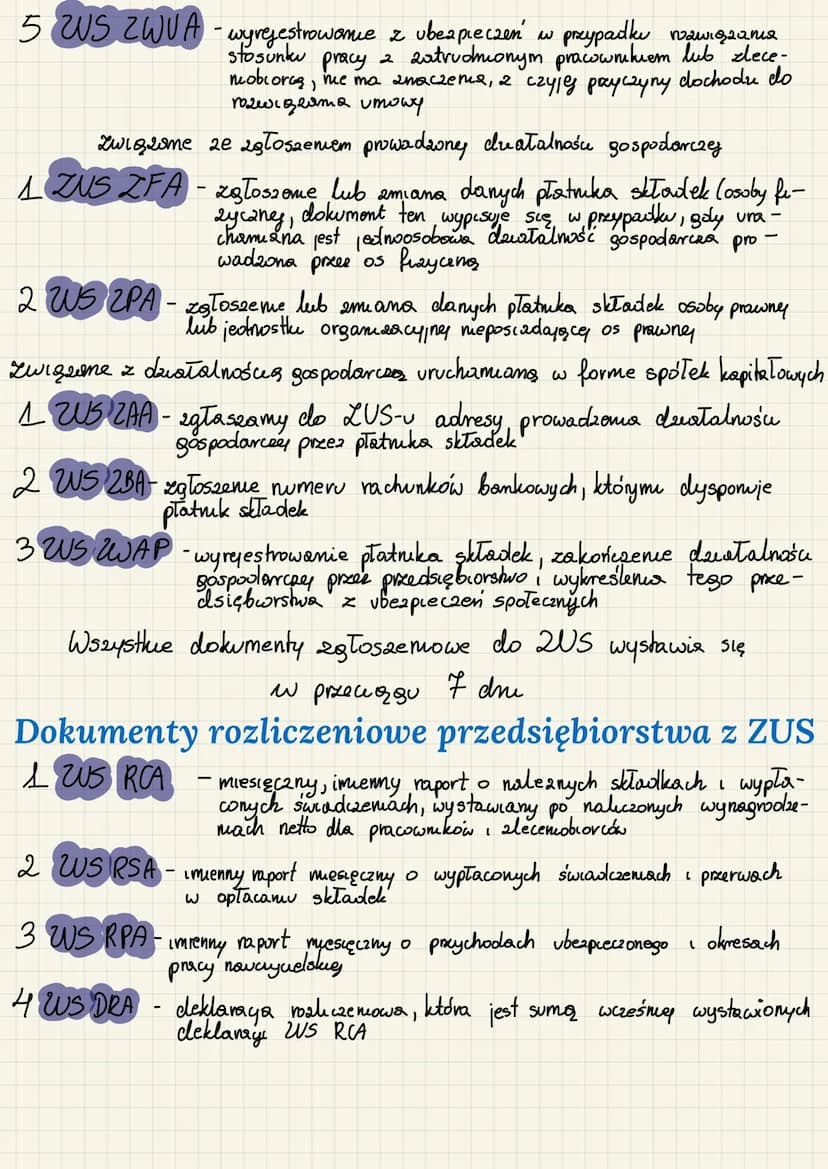 5 ZUS ZWUA - wyrejestrowanie z ubezpieczeń w przypadku rozwiązania
stosunku pracy z zatrudnionym pracownikiem lub zlece-
niobiorcą, nie ma znaczenia, z czyjej przyczyny dochodzi do
rozwiązania umowy
Związane ze zgłoszeniem prowadzonej działalności gospodarczej
1 ZUS ZFA - zgłoszenie lub zmiana danych płatnika składek (osoby fi-
zycznej, dokument ten wypisuje się w przypadku, gdy uru-
chamiana jest jednoosobowa działalność gospodarcza pro-
wadzona przez os fizyczną
2 ZUS ZPA - zgłoszenie lub zmiana danych płatnika składek osoby prawnej
lub jednostki organizacyjnej nieposiadającej os prawnej
Związane z działalnością gospodarczą uruchamianą w formie spółek kapitałowych
1 ZUS ZAA - zgłaszamy do ZUS-u adresy prowadzenia działalności
gospodarczej przez płatnika składek
2 ZUS ZBA - zgłoszenie numeru rachunków bankowych, którymi dysponuje
płatnik składek
3 ZUS ZWAP - wyrejestrowanie płatnika składek, zakończenie działalności
gospodarczej przez przedsiębiorstwo i wykreślenia tego prze-
dsiębiorstwa z ubezpieczeń społecznych
Wszystkie dokumenty zgłoszeniowe do ZUS wystawia się
w przeciągu 7 dni
Dokumenty rozliczeniowe przedsiębiorstwa z ZUS
1 ZUS RCA - miesięczny, imienny raport o należnych składkach i wypła-
conych świadczeniach, wystawiany po naliczonych wynagrodze-
niach netto dla pracowników i zleceniobiorców
2 ZUS RSA - imienny raport miesięczny o wypłaconych świadczeniach i przerwach
w opłacaniu składek
3 ZUS RPA - imienny raport miesięczny o przychodach ubezpieczonego i okresach
pracy nauczycielskiej
4 ZUS DRA - deklaracja rozliczeniowa, która jest sumą wcześniej wystawionych
deklaracji ZUS RCA